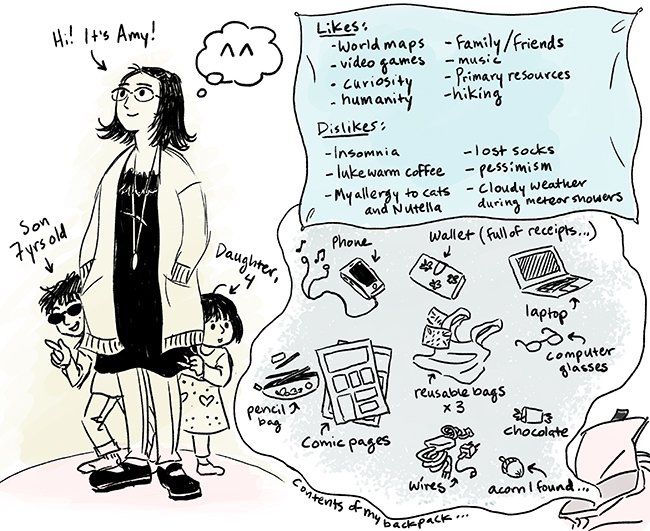 Hi! It's Amy!
^ ^
Likes:
- World maps
- video games
- curiosity
- humanity
- Family/friends
- music
- Primary resources
- hiking
Dislikes:
- Insomnia
- lukewarm coffee
- My allergy to cats
and Nutella
- lost socks
- pessimism
- Cloudy weather
during meteor showers
Son
7yrs old
Daughter,
4
Phone
Wallet (full of receipts...)
laptop
computer
glasses
reusable bags
x3
pencil
bag
Comic pages
chocolate
wires
acorn I found...
contents of my
backpack...